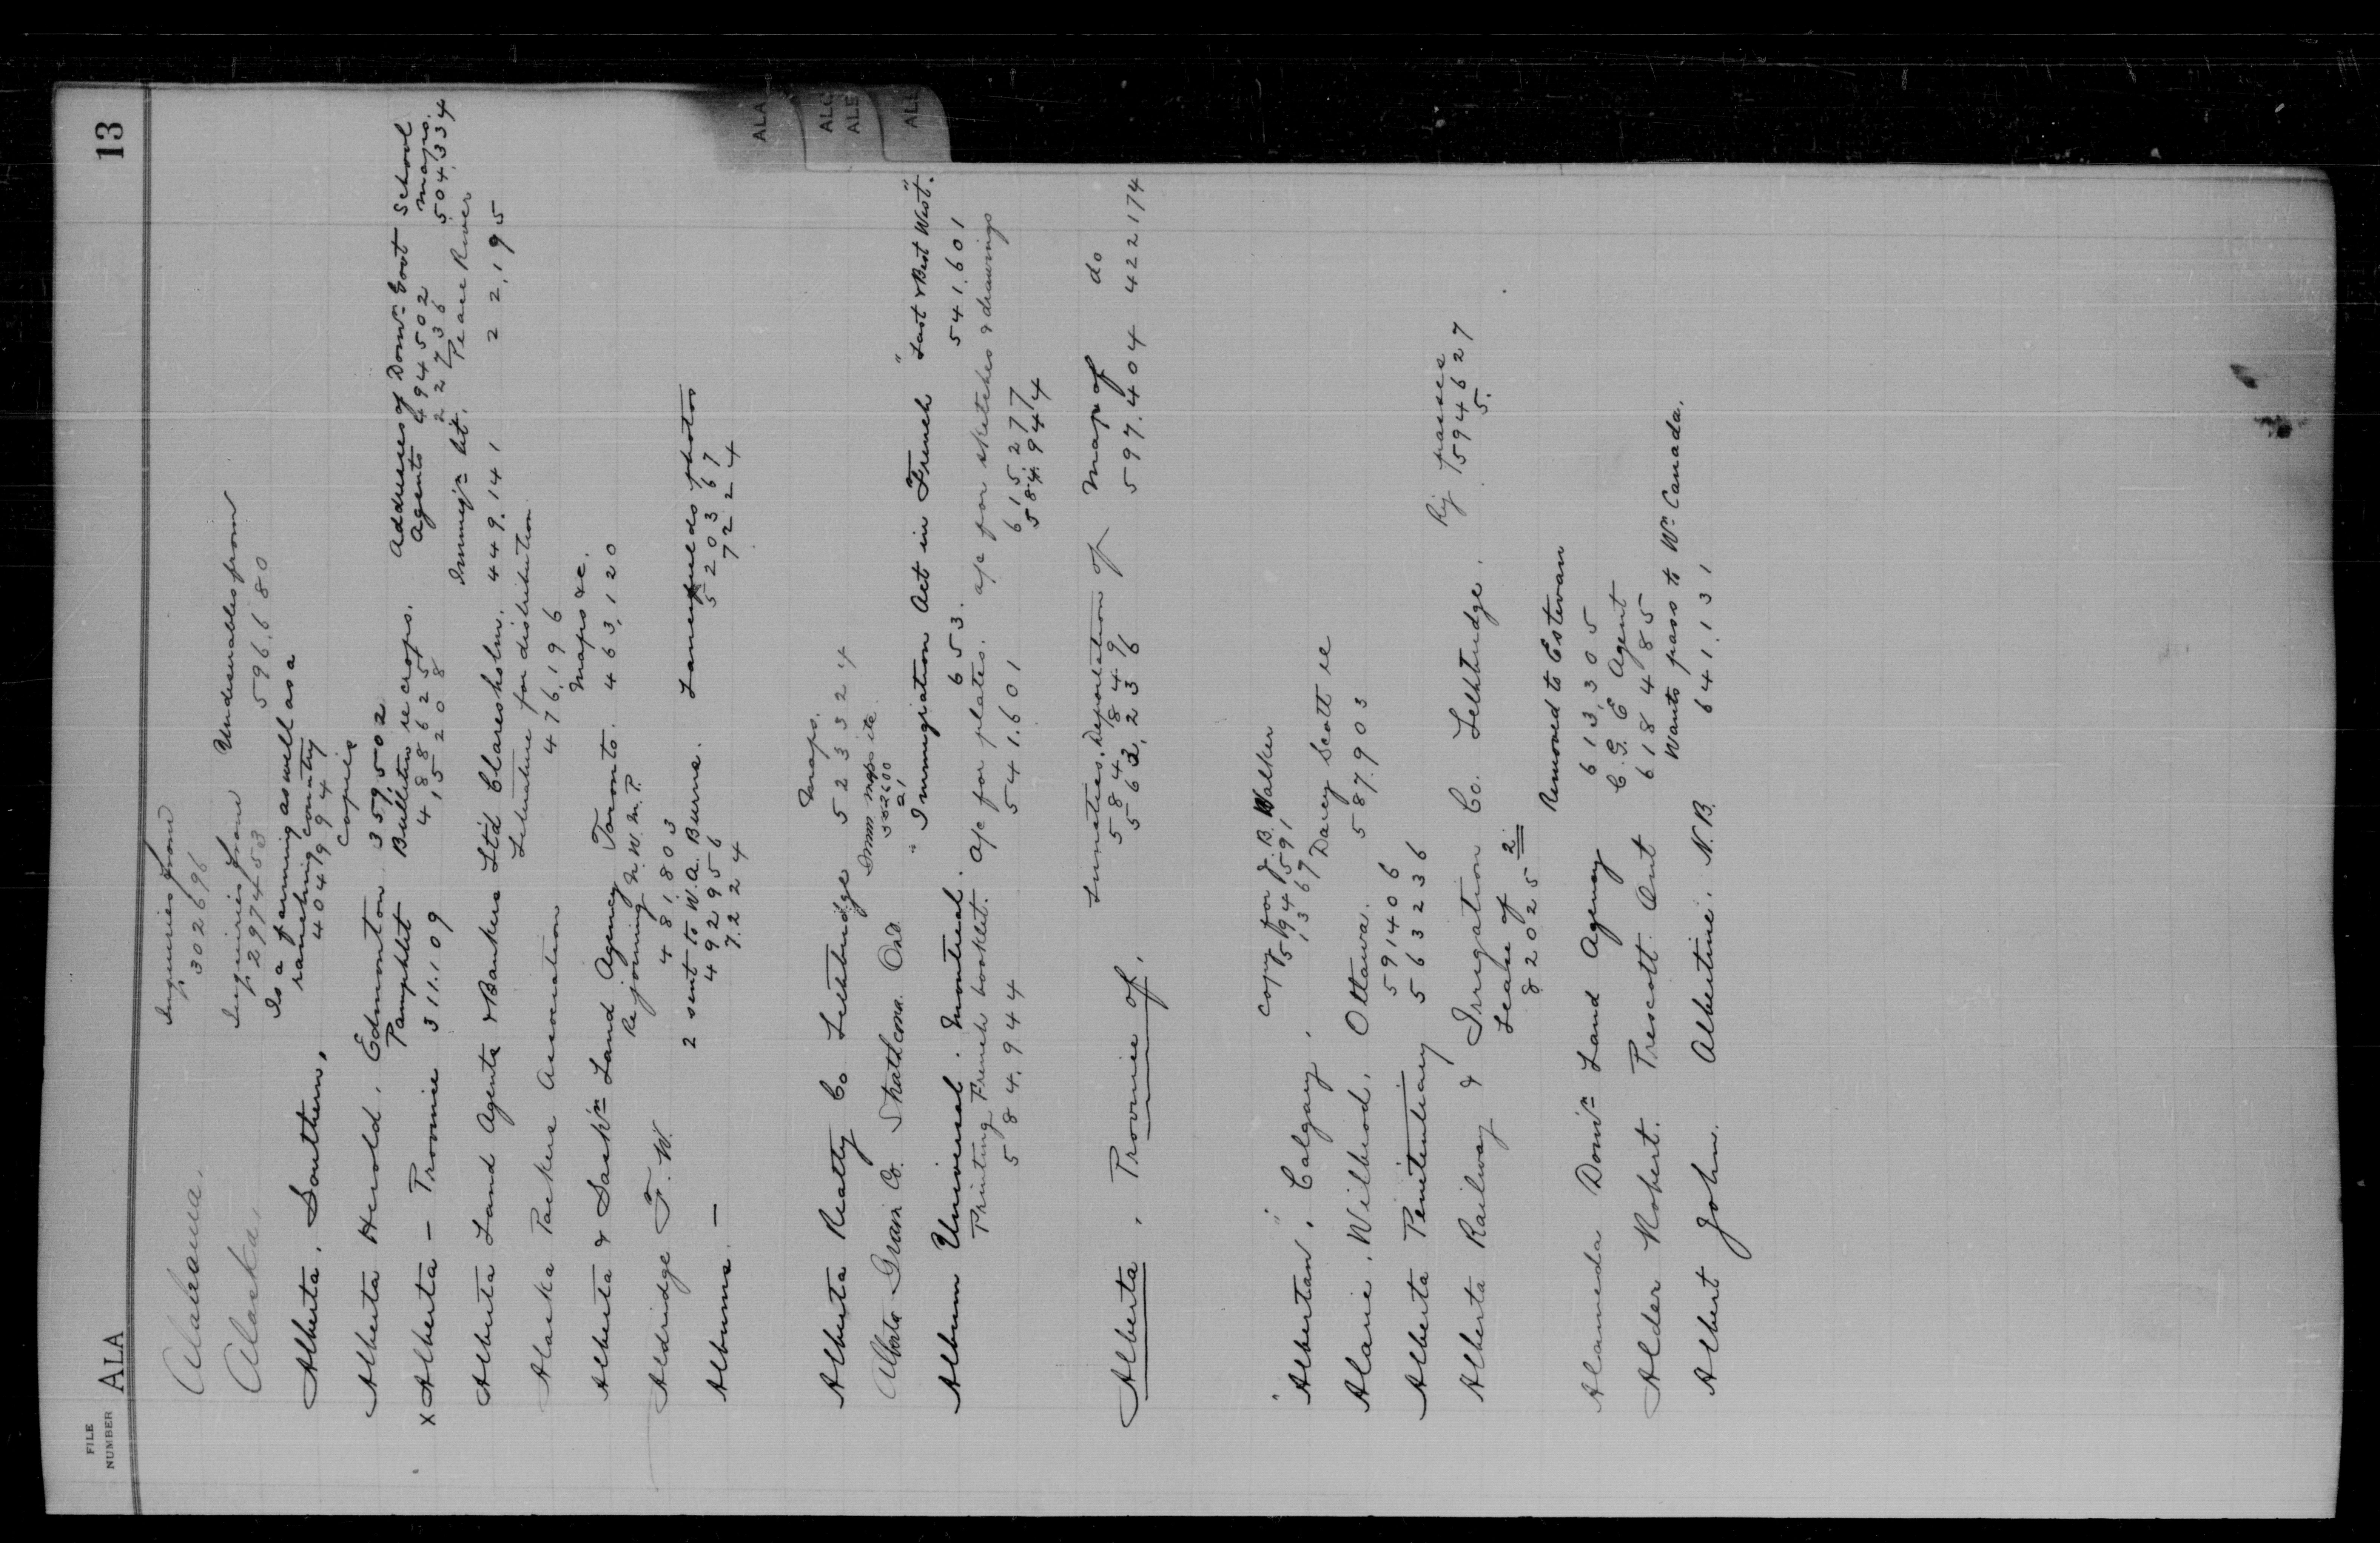 FILE NUMBER
ALA
13
Inquiries from
Alabama. 302696
Inquiries from Undesirables from
Alaska. 297453 596,680
Is a farming as well as a
ranching country
Alberta. Southern. 404994
copies
Alberta Herald. Edmonton 359,502
Pamphlet Bulletins re crops. Addresses of Domn Govt School
Agents 494502 maps.
x Alberta - Province 311.109 488625 22736 504,334
415208
Immign lit. Peace River
Alberta Land Agents & Bankers Ltd Claresholm. 449.141 22,195
Literature for distribution
Alaska Packers Association 476,196
Maps &c.
Alberta & Saskn Land Agency Toronto. 463,120
Rejoining N.W.M.P.
Aldridge F. W. 481803
2 sent to W.A. Burns. Lanefields photos
Albums. - 492956 520367
7224 7224
Maps.
Alberta Realty Co Lethbridge 523324
Imm maps etc.
Alberta Grain Co. Strathcona. Ont.
"Immigration Act in French "Last & Best West".
Album Universal. Montreal. 653. 541.601
Printing French booklet. a/c for plates. a/c for sketches & drawings
584.944 541.601 615277
584.944
Lunatics, Deportation of Map of do
Alberta. Province of. 584849 597.404 422174
563,236
Copy for J. B. Walker
"Albertan". Calgary. 594591
1367
Davey Scott re
Alarie. Wilbrod. Ottawa. 587.903
591406
Alberta Penitentiary 563236
Alberta Railway & Irrigation Co. Lethbridge. Rij passes
594627
5.
Lease of 2
82025
Removed to Estevan
Alameda Domn Land Agency 613,305
C.G.E Agent
Alder Robert. Prescott Ont 618485
Wants pass to Wn Canada.
Albert John. Albertine. N.B. 641,131
ALA
ALC
ALE